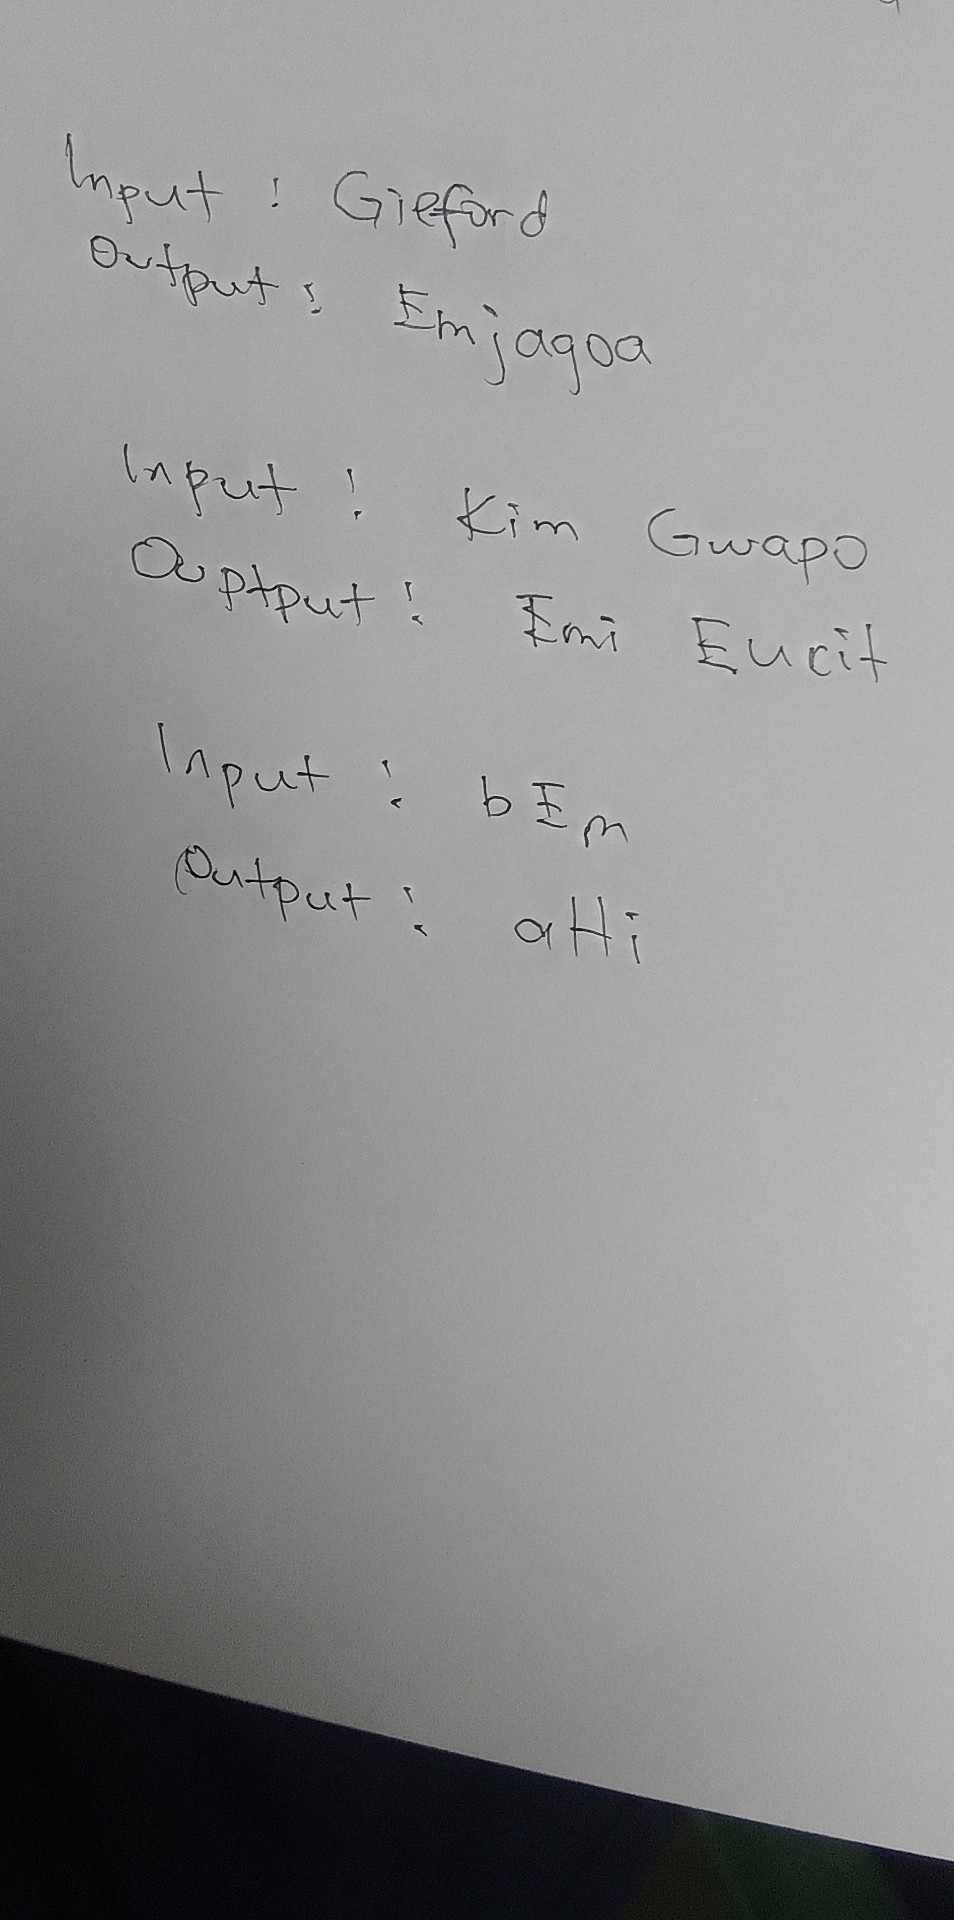 Input : Gieford
Output : Emjagoa
Input : Kim Gwapo
Ouptput : Emi Eucit
Input : bEm
Output : aHi